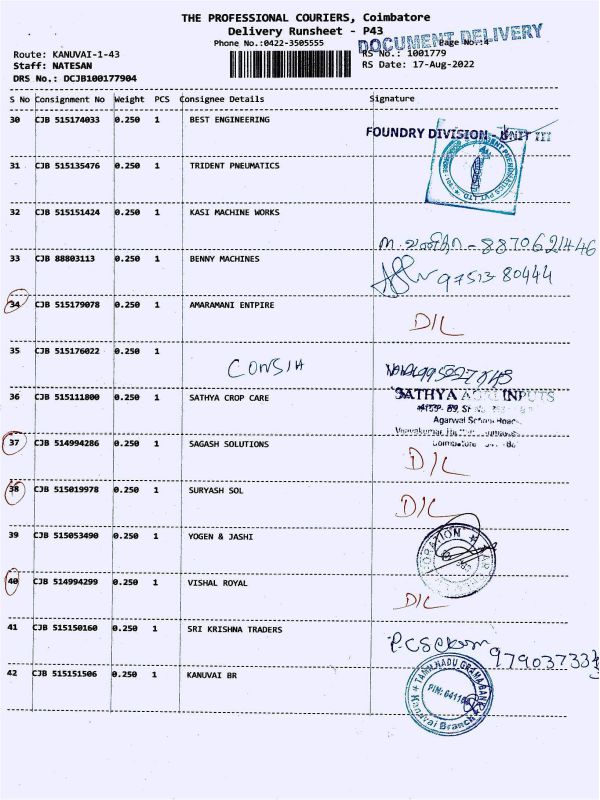 THE PROFESSIONAL COURIERS, Coimbatore
Delivery Runsheet - P43
Phone No.:0422-3505555
DOCUMENT DELIVERY
Page No.:4
Route: KANUVAI-1-43
RS No.: 1001779
Staff: NATESAN
RS Date: 17-Aug-2022
DRS No.: DCJB100177904
S No Consignment No Weight PCS Consignee Details Signature
30 CJB 515174033 0.250 1 BEST ENGINEERING
FOUNDRY DIVISION - UNIT III
31 CJB 515135476 0.250 1 TRIDENT PNEUMATICS
32 CJB 515151424 0.250 1 KASI MACHINE WORKS
8870621446
33 CJB 88803113 0.250 1 BENNY MACHINES
97513 80444
34 CJB 515179078 0.250 1 AMARAMANI ENTPIRE
D/L
35 CJB 515176022 0.250 1
CONSIA
36 CJB 515111800 0.250 1 SATHYA CROP CARE
SATHYA AGRI INPUTS
Agarwal School Road
37 CJB 514994286 0.250 1 SAGASH SOLUTIONS
D/L
38 CJB 515019978 0.250 1 SURYASH SOL
D/L
39 CJB 515053490 0.250 1 YOGEN & JASHI
40 CJB 514994299 0.250 1 VISHAL ROYAL
D/L
41 CJB 515150160 0.250 1 SRI KRISHNA TRADERS
42 CJB 515151506 0.250 1 KANUVAI BR
TAMILNADU GRAMA BANK
Kanuvai Branch